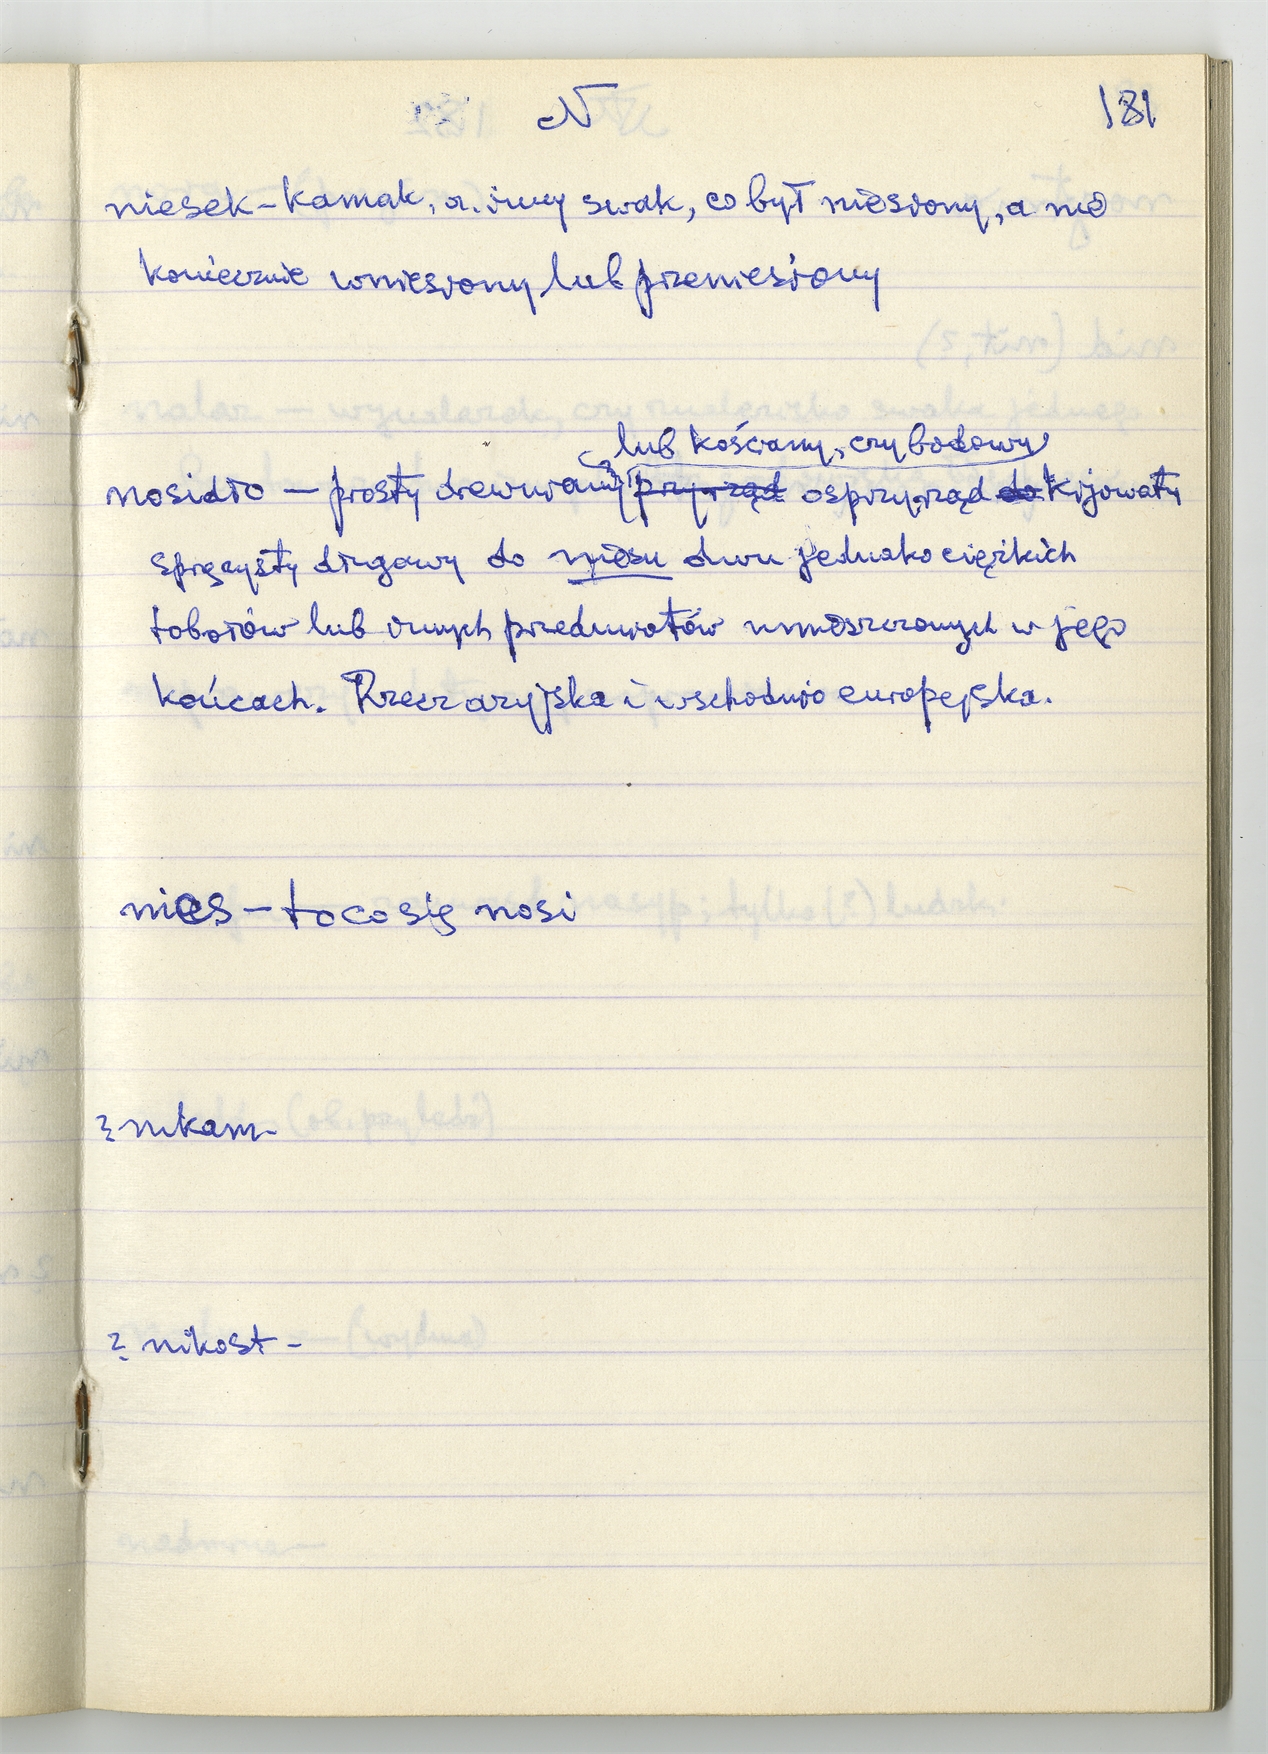 N 181
niesek – kamąk, a. inny swak, co był niesiony, a nie
koniecznie wniesiony lub przeniesiony
lub kościany, czy bodowy
nosidło – prosty drewniany przyrząd osprzyrząd do kijowaty
sprężysty drgawy do niesu dwu jednako ciężkich
tobołów lub innych przedmiotów umieszczonych w jego
końcach. Rzecz azyjska i wschodnio europejska.
nies – to co się nosi
? nikam –
? nikost –